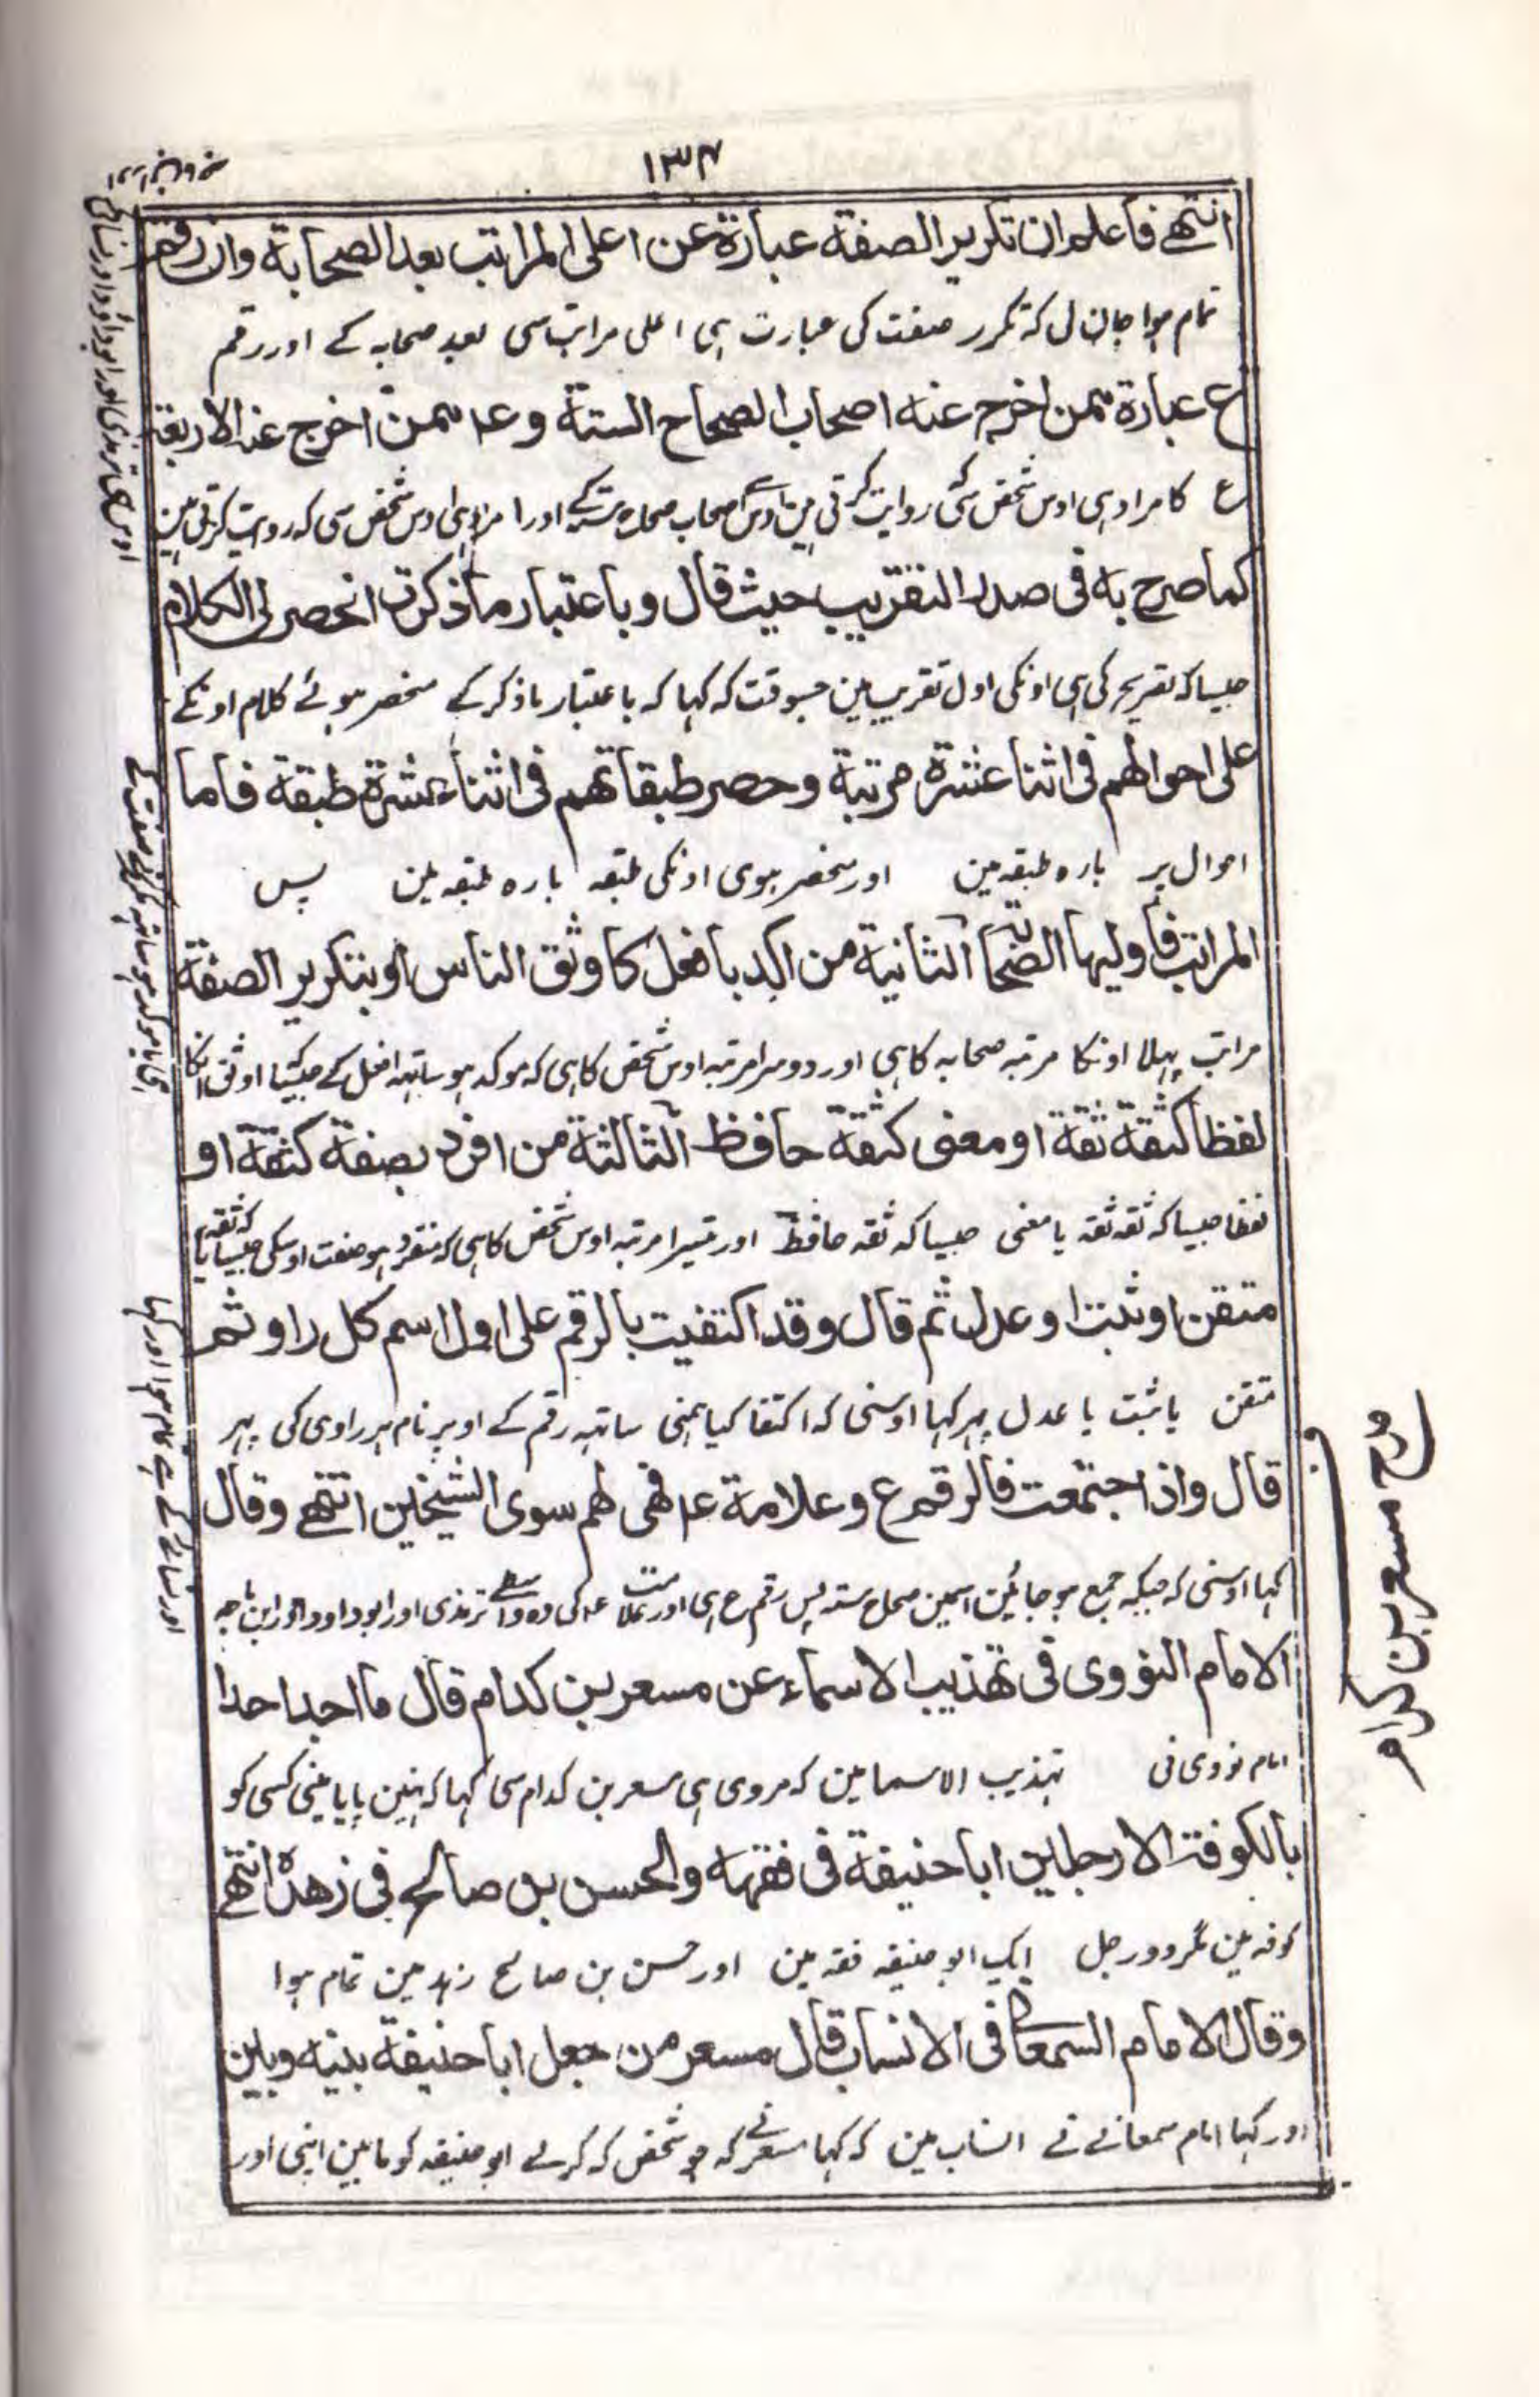 ١٣٤
انتهے فاعلم ان تكرير الصفة عبارة عن اعلى المراتب بعد الصحابة وان رقم
تمام ہوا جان لی کہ تکرر صفت کی عبارت ہی اعلی مراتب سی بعد صحابہ کے اور رقم
ع عبارة ممن اخرج عنه اصحاب الصحاح الستة وعا ممن اخرج عنه الاربعة
ع کا مراد ہی اوس شخص سی کہ روایت کرتی ہین اوسی اصحاب صحاح ستہ کے اور ا مراد ہی اوس شخص سی کہ روایت کرتی ہین
كما صرح به فى صدر التقريب حيث قال وباعتبار ما ذكرت انحصر لى الكلام
جیسا کہ تصریح کی ہی اونکی اول تقریب مین جسوقت کہ کہا کہ باعتبار ماذکر کے منحصر ہوئے کلام اونکے
على احوالهم فى اثنا عشرة مرتبة وحصر طبقاتهم فى اثنا عشرة طبقة فاما
احوال پر بارہ طبقہ مین اور منحصر ہوی اونکی طبقہ بارہ طبقہ مین پس
المراتب فاوليها الصحابة الثانية من اكد بافعل كاوثق الناس او بتكرير الصفة
مراتب پہلا اونکا مرتبہ صحابہ کا ہی اور دوسرا مرتبہ اوس شخص کا ہی کہ موکد ہو ساتہہ افعل کے جیسا اوثق الناس
لفظا كثقة ثقة او معنى كثقة حافظ الثالثة من افرد بصفة كثقة او
لفظا جیسا کہ ثقہ ثقہ یا معنی جیسا کہ ثقہ حافظ اور تیسرا مرتبہ اوس شخص کا ہی کہ منفرد ہو صفت اوسکی جیسا کہ ثقہ یا
متقن او ثبت او عدل ثم قال وقد اكتفيت بالرقم على اول اسم كل راو ثم
متقن یا ثبت یا عدل پہر کہا اوسنی کہ اکتفا کیا ہمنی ساتہہ رقم کے اوپر نام ہر راوی کی پہر
قال واذا اجتمعت فالرقم ع وعلامة عا فهى لهم سوى الشيخين انتهے وقال
کہا اوسنی کہ جبکہ جمع ہو جائین اسمین صحاح ستہ پس رقم ع ہی اور علامت عا کی وہ واسطے ترمذی اور ابوداود اور ابن ماجہ
الامام النووى فى تهذيب الاسماء عن مسعر بن كدام قال ما اجد احدا
امام نووی نی تہذیب الاسما مین کہ مروی ہی مسعر بن کدام سی کہا کہ نہین پایا مینی کسی کو
بالكوفة الا رجلين ابا حنيفة فى فقهه والحسن بن صالح فى زهده انتهے
کوفہ مین مگر دو رجل ایک ابو حنیفہ فقہ مین اور حسن بن صالح زہد مین تمام ہوا
وقال الامام السمعانى فى الانساب قال مسعر من جعل ابا حنيفة بينه وبين
اور کہا امام سمعانے نے انساب مین کہ کہا مسعر نے کہ جو شخص کہ کرلے ابو حنیفہ کو مابین اپنی اور
مدح مسعر بن کدام